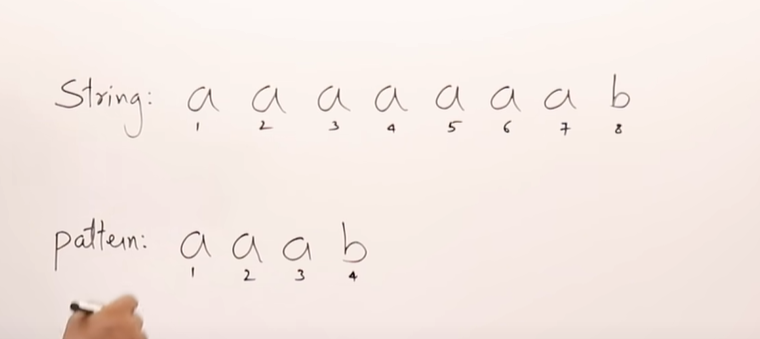 String: a a a a a a a b
1 2 3 4 5 6 7 8
pattern: a a a b
1 2 3 4